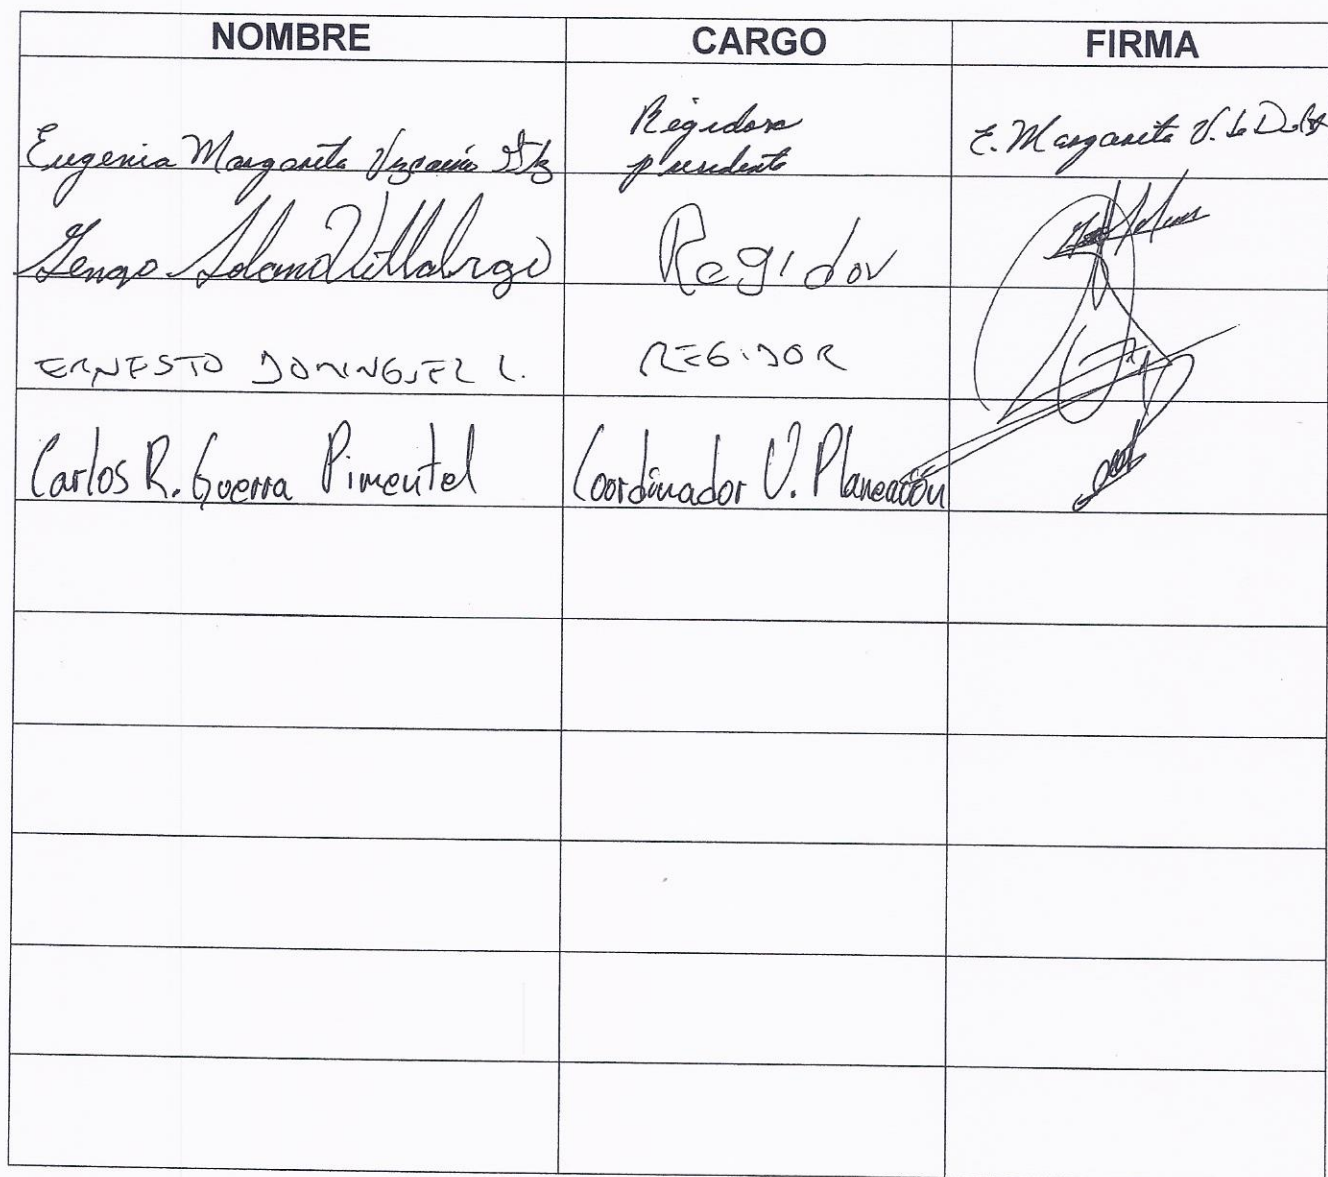 NOMBRE CARGO FIRMA
Eugenia Margarita Vizcaíno Regidora presidente E. Margarita V. de
Solano Villalargo Regidor
ERNESTO DOMINGUEZ L. REGIDOR
Carlos R. Guerra Pimentel Coordinador U. Planeación